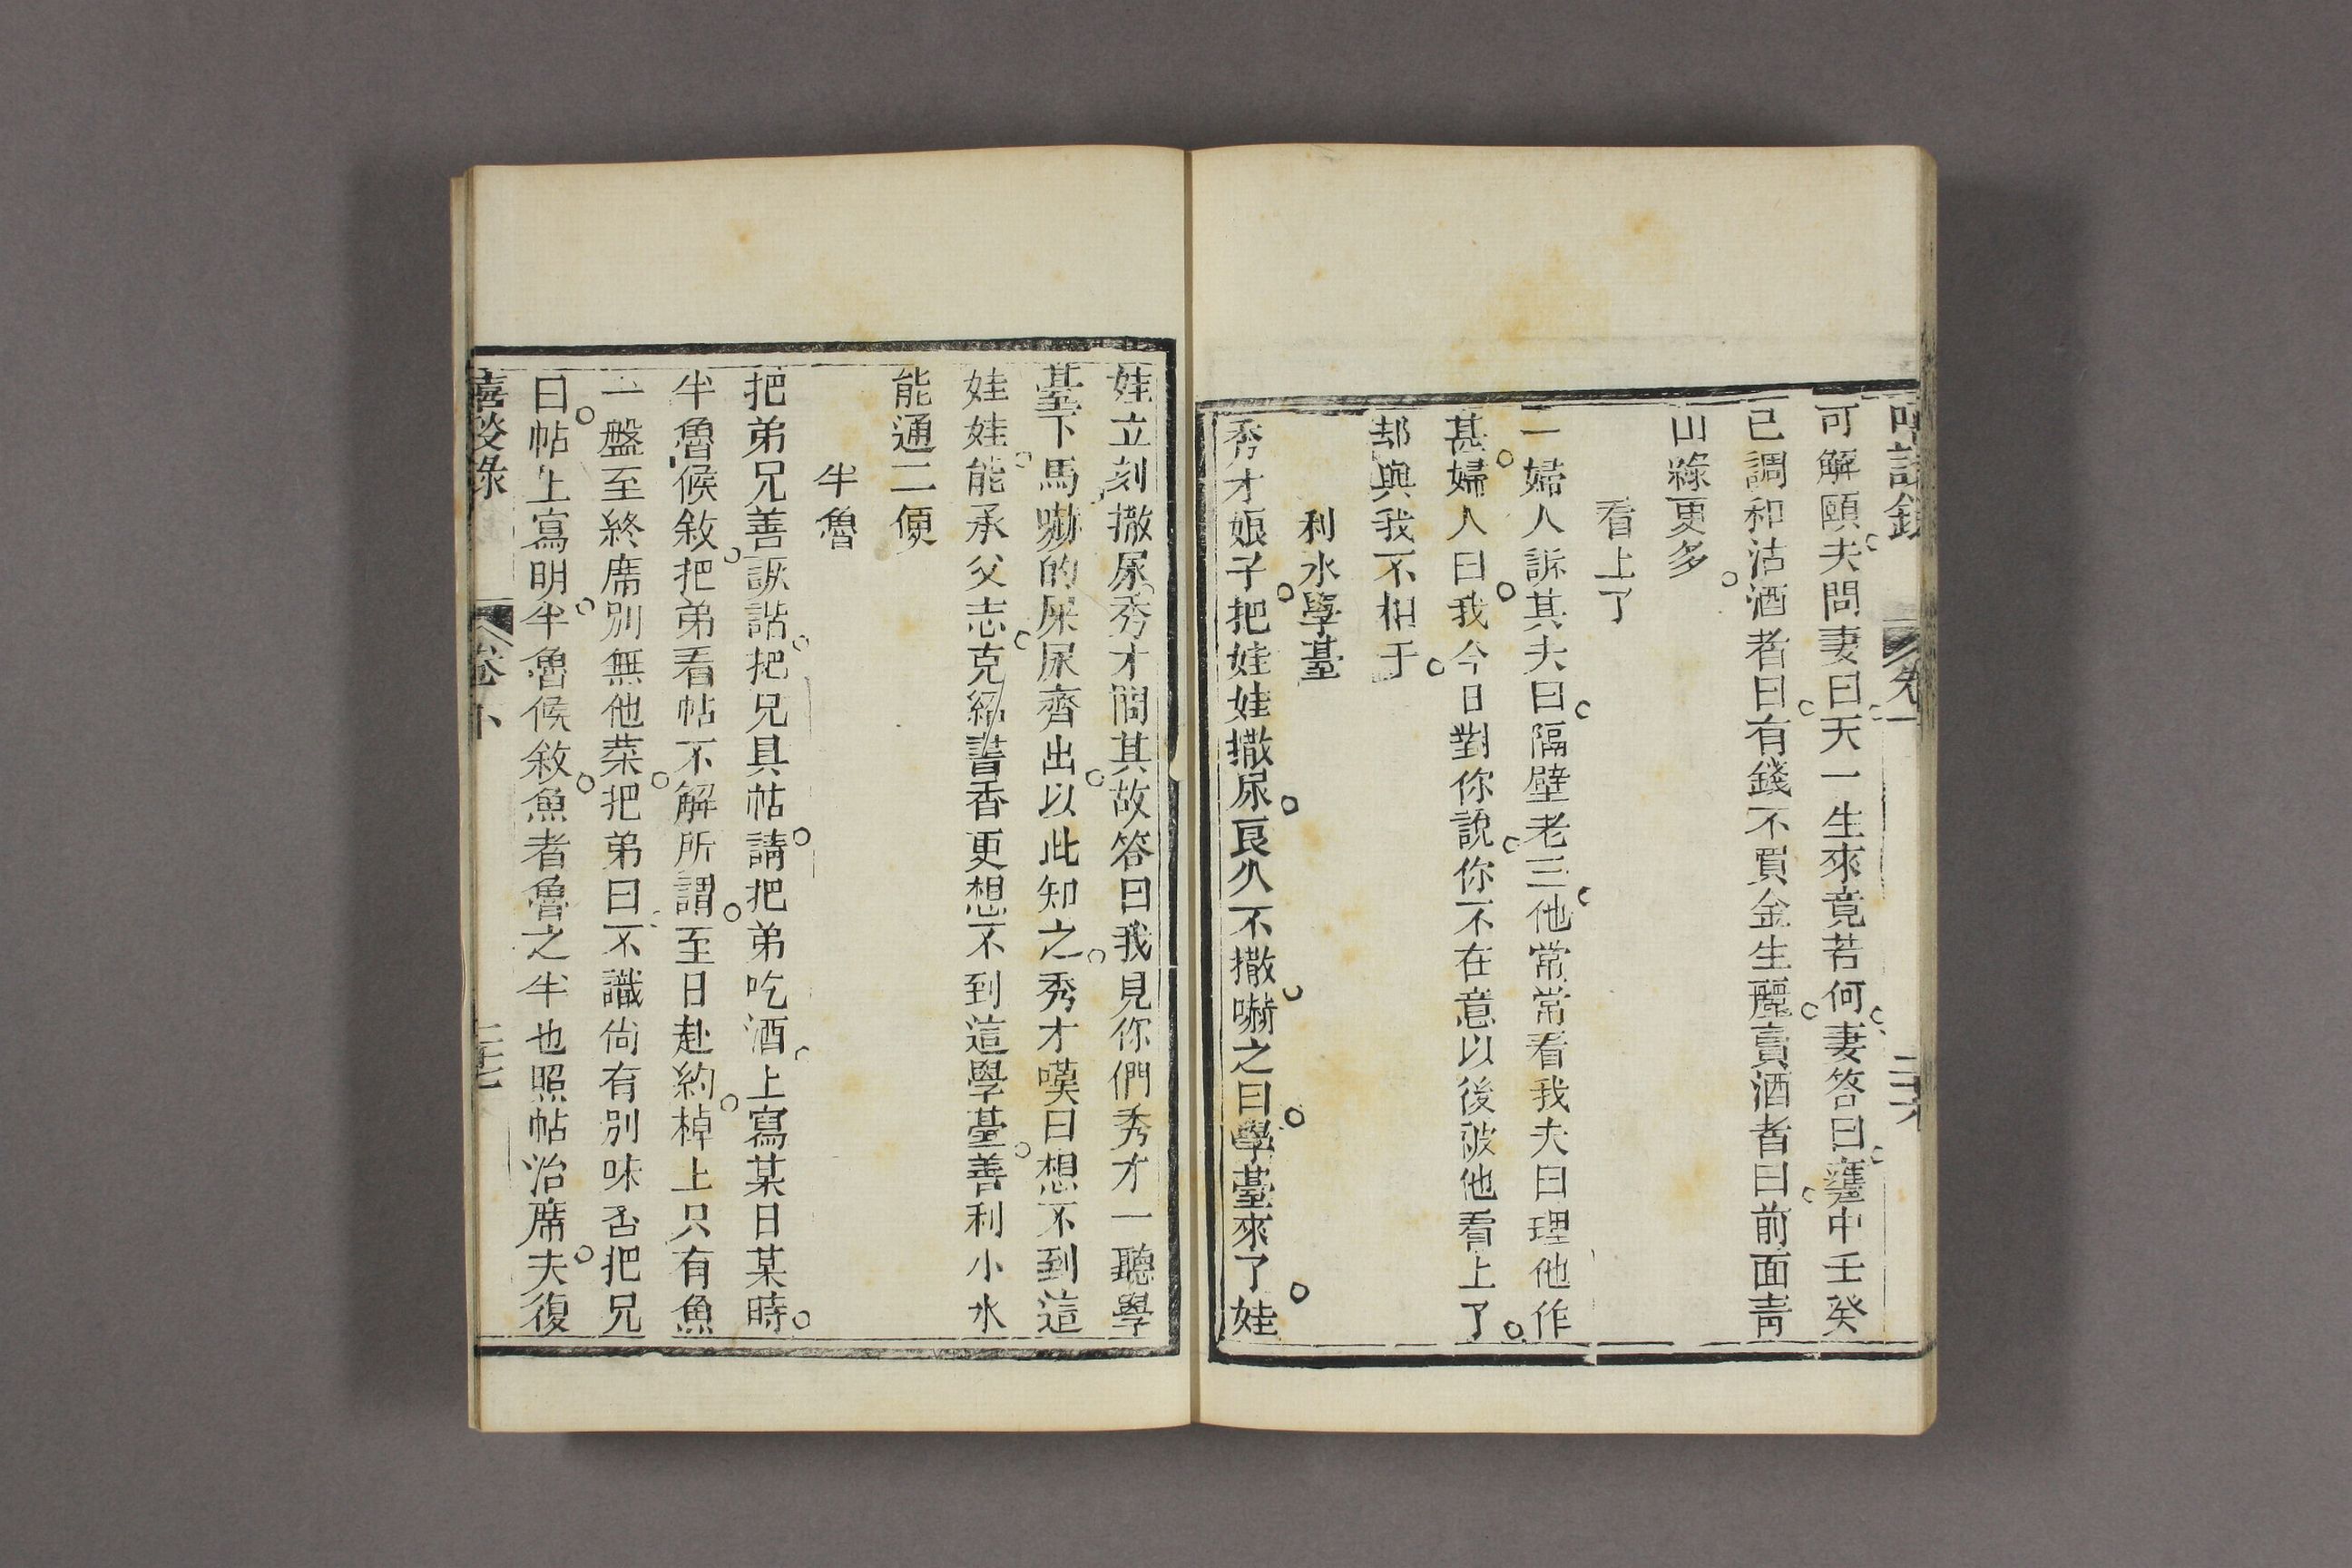 可解頤夫問妻曰天一生來竟若何妻答曰甕中壬癸
已調和沽酒者曰有錢不買金生麗賣酒者曰前面青
山綠更多
看上了
一婦人訴其夫曰隔壁老三他常常看我夫曰理他作
甚婦人曰我今日對你說你不在意以後被他看上了
却與我不相干
利水學臺
秀才娘子把娃娃撒尿良久不撒嚇之曰學臺來了娃
娃立刻撒尿秀才問其故答曰我見你們秀才一聽學
臺下馬嚇的屎尿齊出以此知之秀才嘆曰想不到這
娃娃能承父志克紹書香更想不到這學臺善利小水
能通二便
半魯
把弟兄善詼諧把兄具帖請把弟吃酒上寫某日某時
半魯候敘把弟看帖不解所謂至日赴約棹上只有魚
一盤至終席別無他菜把弟曰不識尙有別味否把兄
曰帖上寫明半魯候敘魚者魯之半也照帖治席夫復
卷下